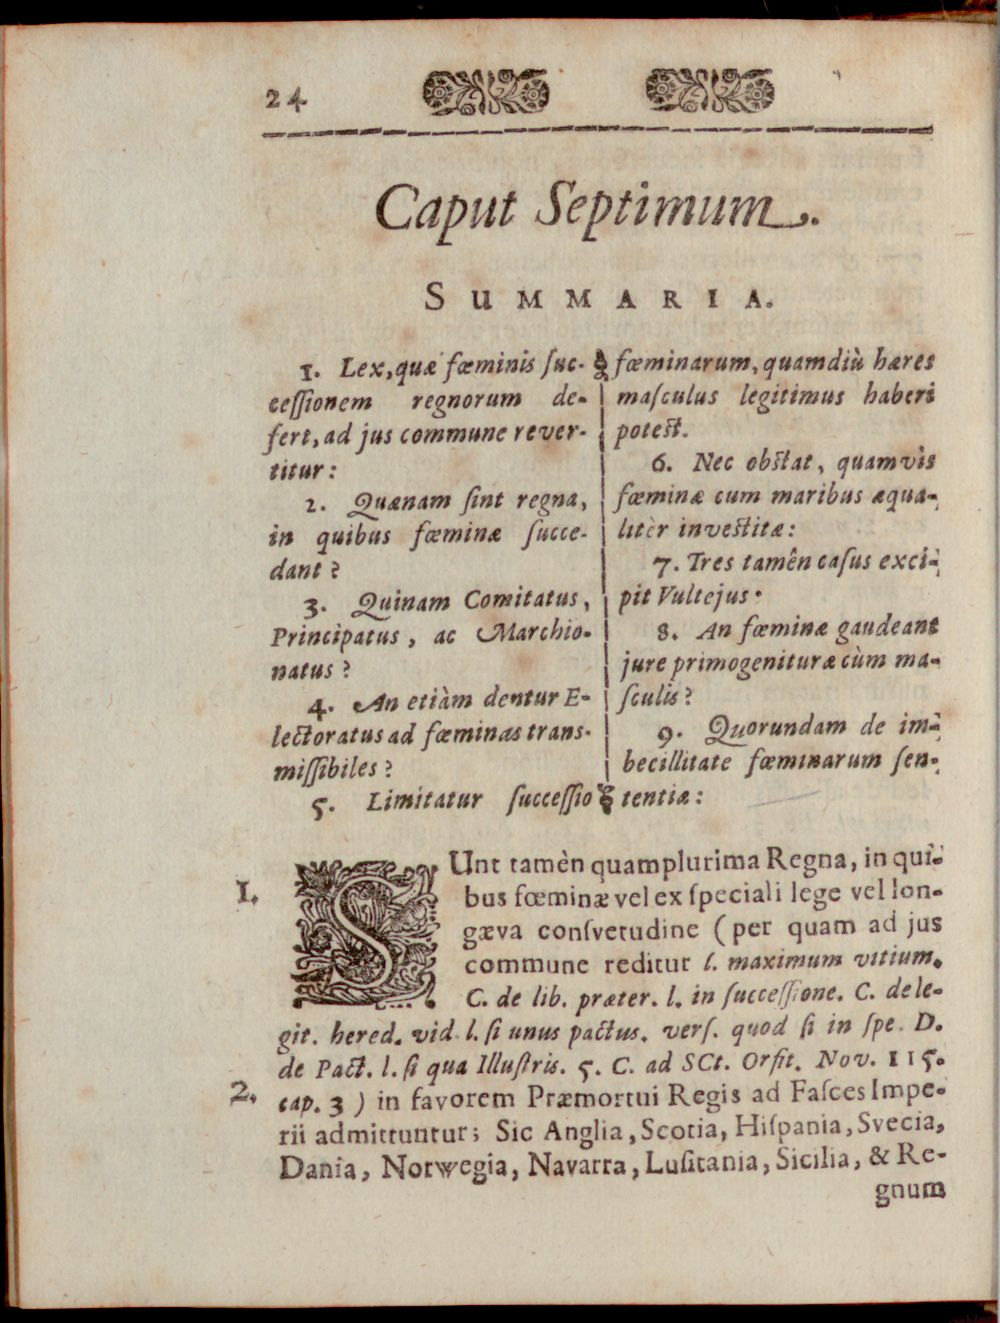 24
Caput Septimum.
SUMMARIA.
1. Lex, quæ fœminis ſuc-
ceſſionem regnorum de-
fert, ad jus commune rever-
titur:
2. Quænam ſint regna,
in quibus fœminæ ſucce-
dant?
3. Quinam Comitatus,
Principatus, ac Marchio-
natus?
4. An etiàm dentur E-
lectoratus ad fœminas trans-
miſſibiles?
5. Limitatur ſucceſſio
fœminarum, quamdiù hæres
maſculus legitimus haberi
poteſt.
6. Nec obſtat, quamvìs
fœminæ cum maribus æqua-
litèr inveſtitæ:
7. Tres tamên caſus exci-
pit Vultejus:
8. An fœminæ gaudeant
jure primogenituræ cùm ma-
ſculis?
9. Quorundam de im-
becillitate fœminarum ſen-
tentiæ:
1.
SUnt tamèn quamplurima Regna, in qui-
bus fœminæ vel ex ſpeciali lege vel lon-
gæva conſvetudine (per quam ad jus
commune reditur l. maximum vitium.
C. de lib. præter. l. in ſucceſſione. C. de le-
git. hered. vid. l. ſi unus pactus. verſ. quod ſi in ſpe. D.
de Pact. l. ſi qua Illuſtris. 5. C. ad SCt. Orfit. Nov. 115.
2.
cap. 3) in favorem Præmortui Regis ad Faſces Impe-
rii admittuntur; Sic Anglia, Scotia, Hiſpania, Svecia,
Dania, Norwegia, Navarra, Luſitania, Sicilia, & Re-
gnum